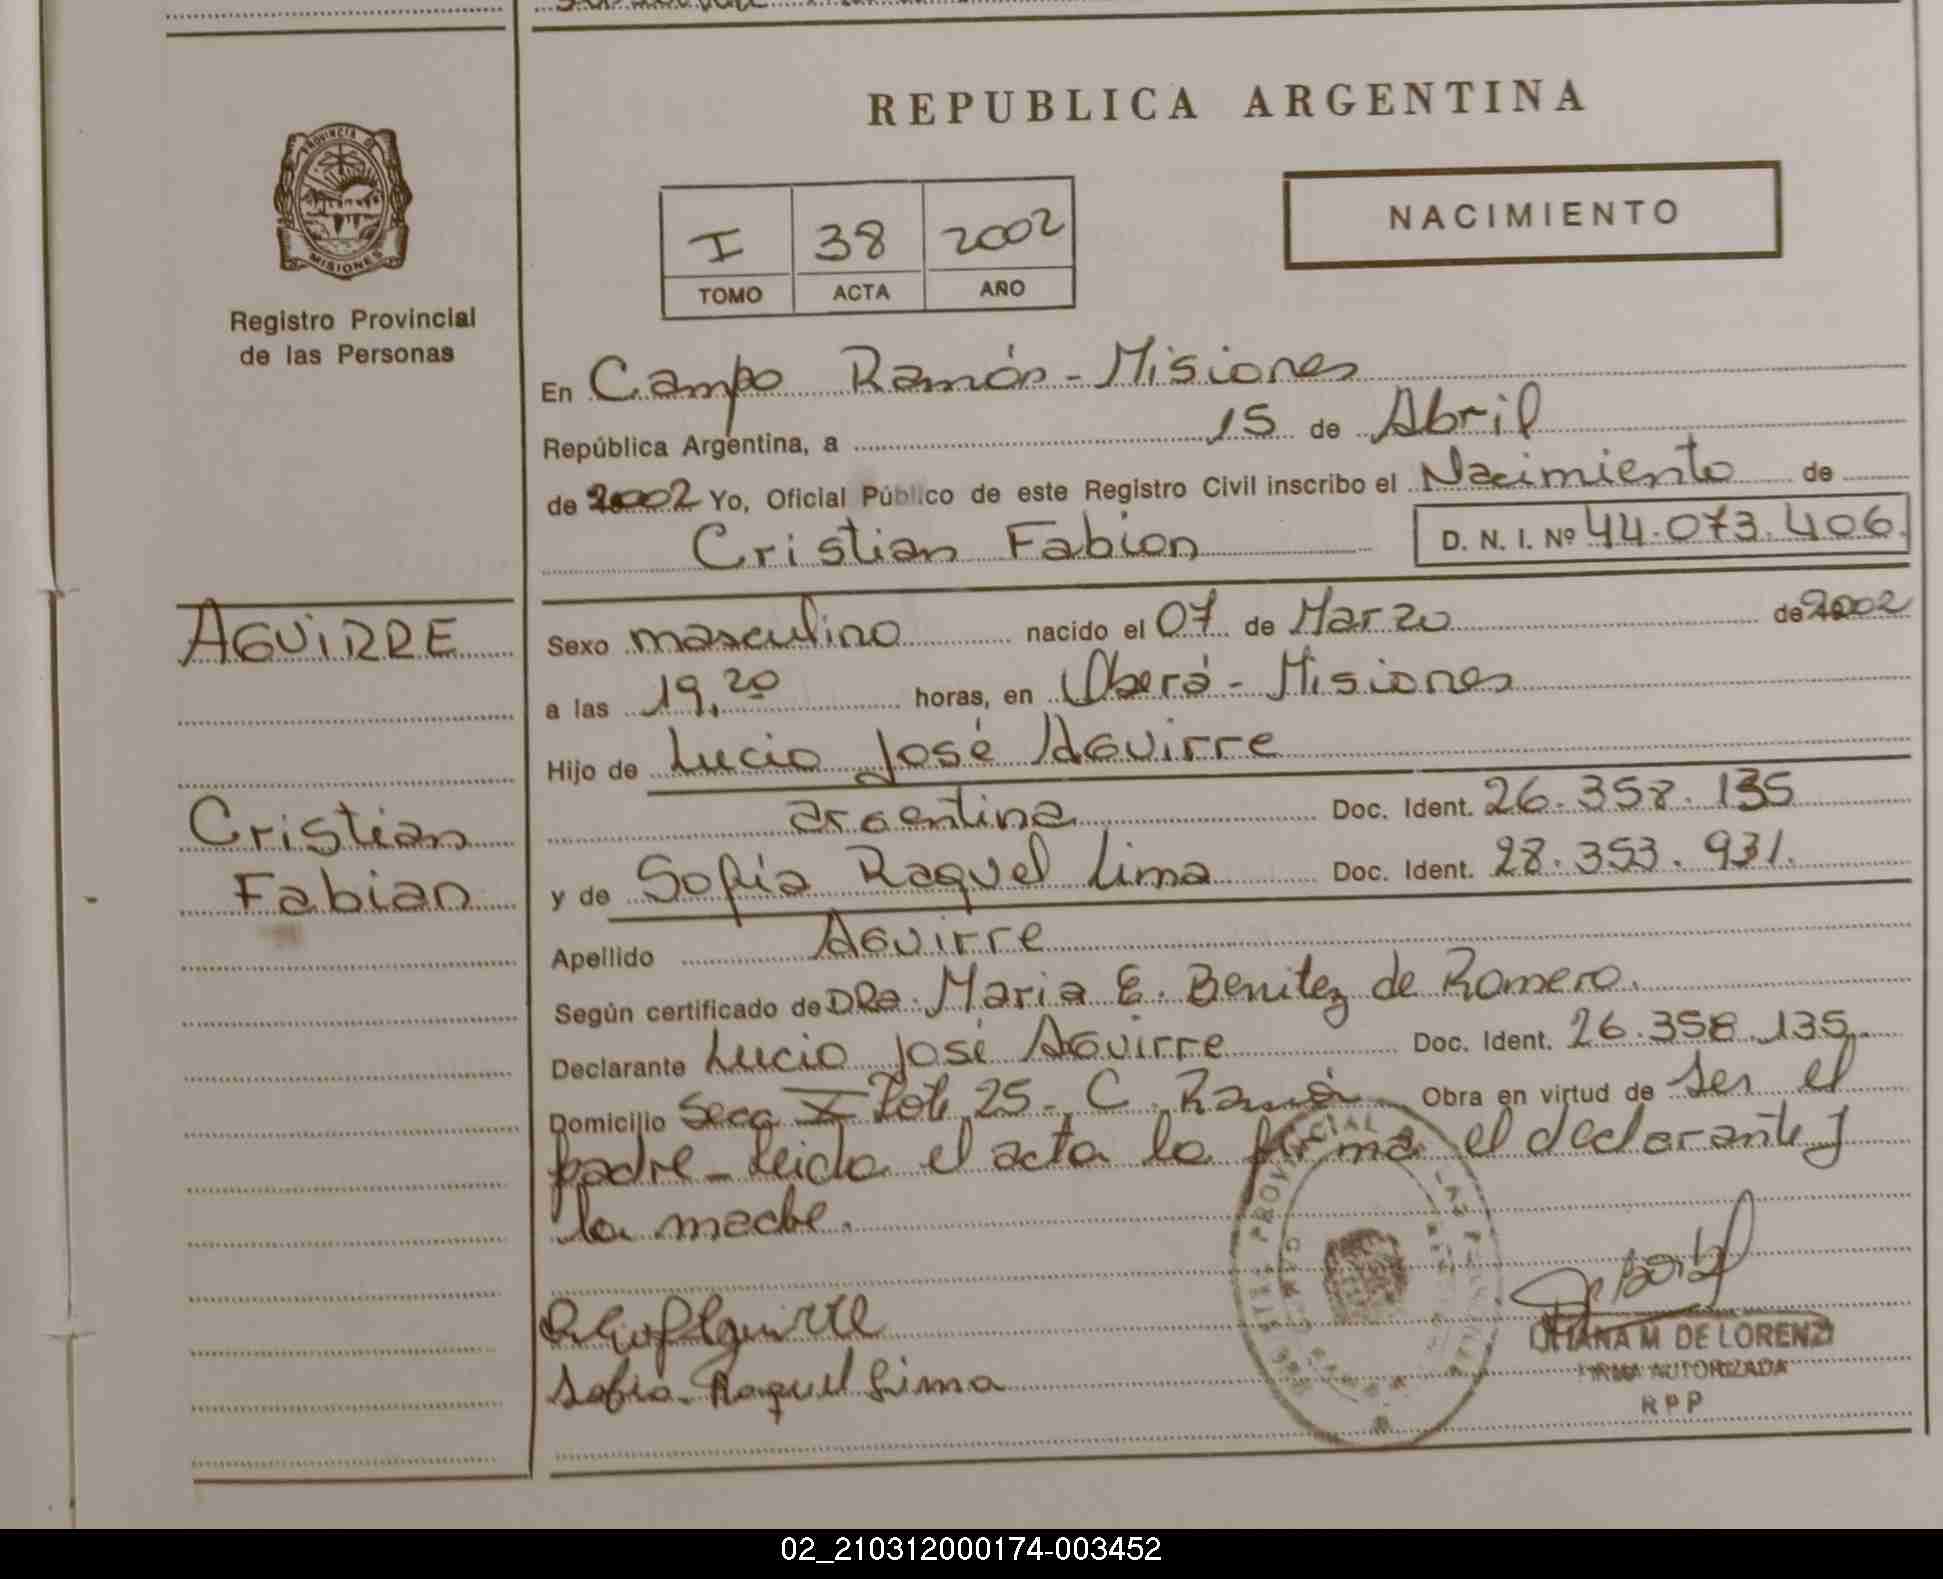 REPUBLICA ARGENTINA
PROVINCIA DE
MISIONES
Registro Provincial
de las Personas
I 38 2002
TOMO ACTA AÑO
NACIMIENTO
En Campo Ramón - Misiones
República Argentina, a 15 de Abril
de 2002 Yo, Oficial Público de este Registro Civil inscribo el Nacimiento de
Cristian Fabion D. N. I. Nº 44.073.406.
AGUIRRE
Cristian
Fabian
Sexo masculino nacido el 07 de Marzo de 2002
a las 19,20 horas, en Oberá - Misiones
Hijo de Lucio José Aguirre
argentina Doc. Ident. 26.358.135
y de Sofía Raquel Lima Doc. Ident. 28.353.931.
Apellido Aguirre
Según certificado de DRa. Maria E. Benitez de Romero.
Declarante Lucio José Aguirre Doc. Ident. 26.358.135
Domicilio Secc X Lote 25 - C. Ramón Obra en virtud de ser el
padre - Leida el acta la firma el declarante y
la madre.
Sofia Raquel Lima
LILIANA M. DE LORENZI
FIRMA AUTORIZADA
RPP
02_210312000174-003452